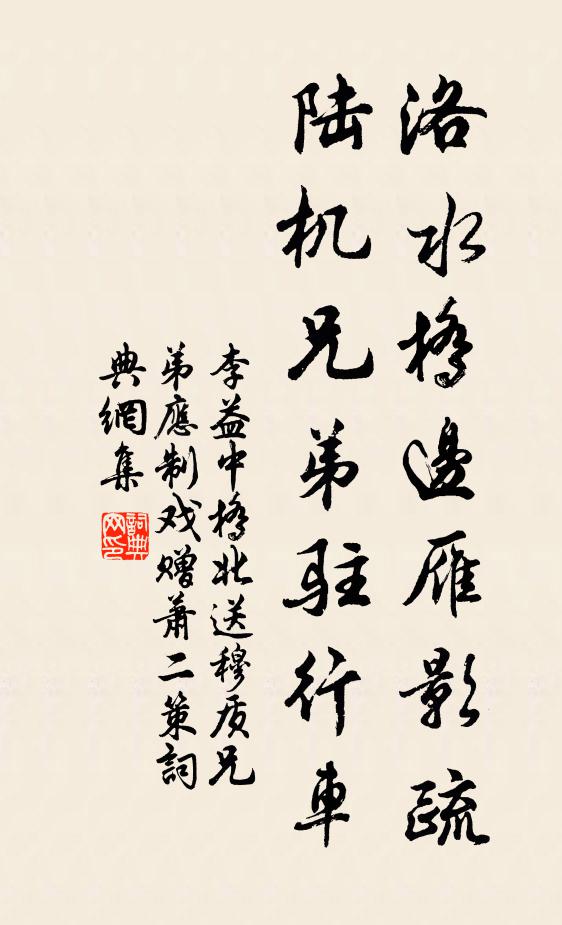 洛水橋邊雁影疏
陆机兄弟驻行車
李益中橋北送穆质兄
弟應制戏赠萧二策詞
典網集
詞典网印